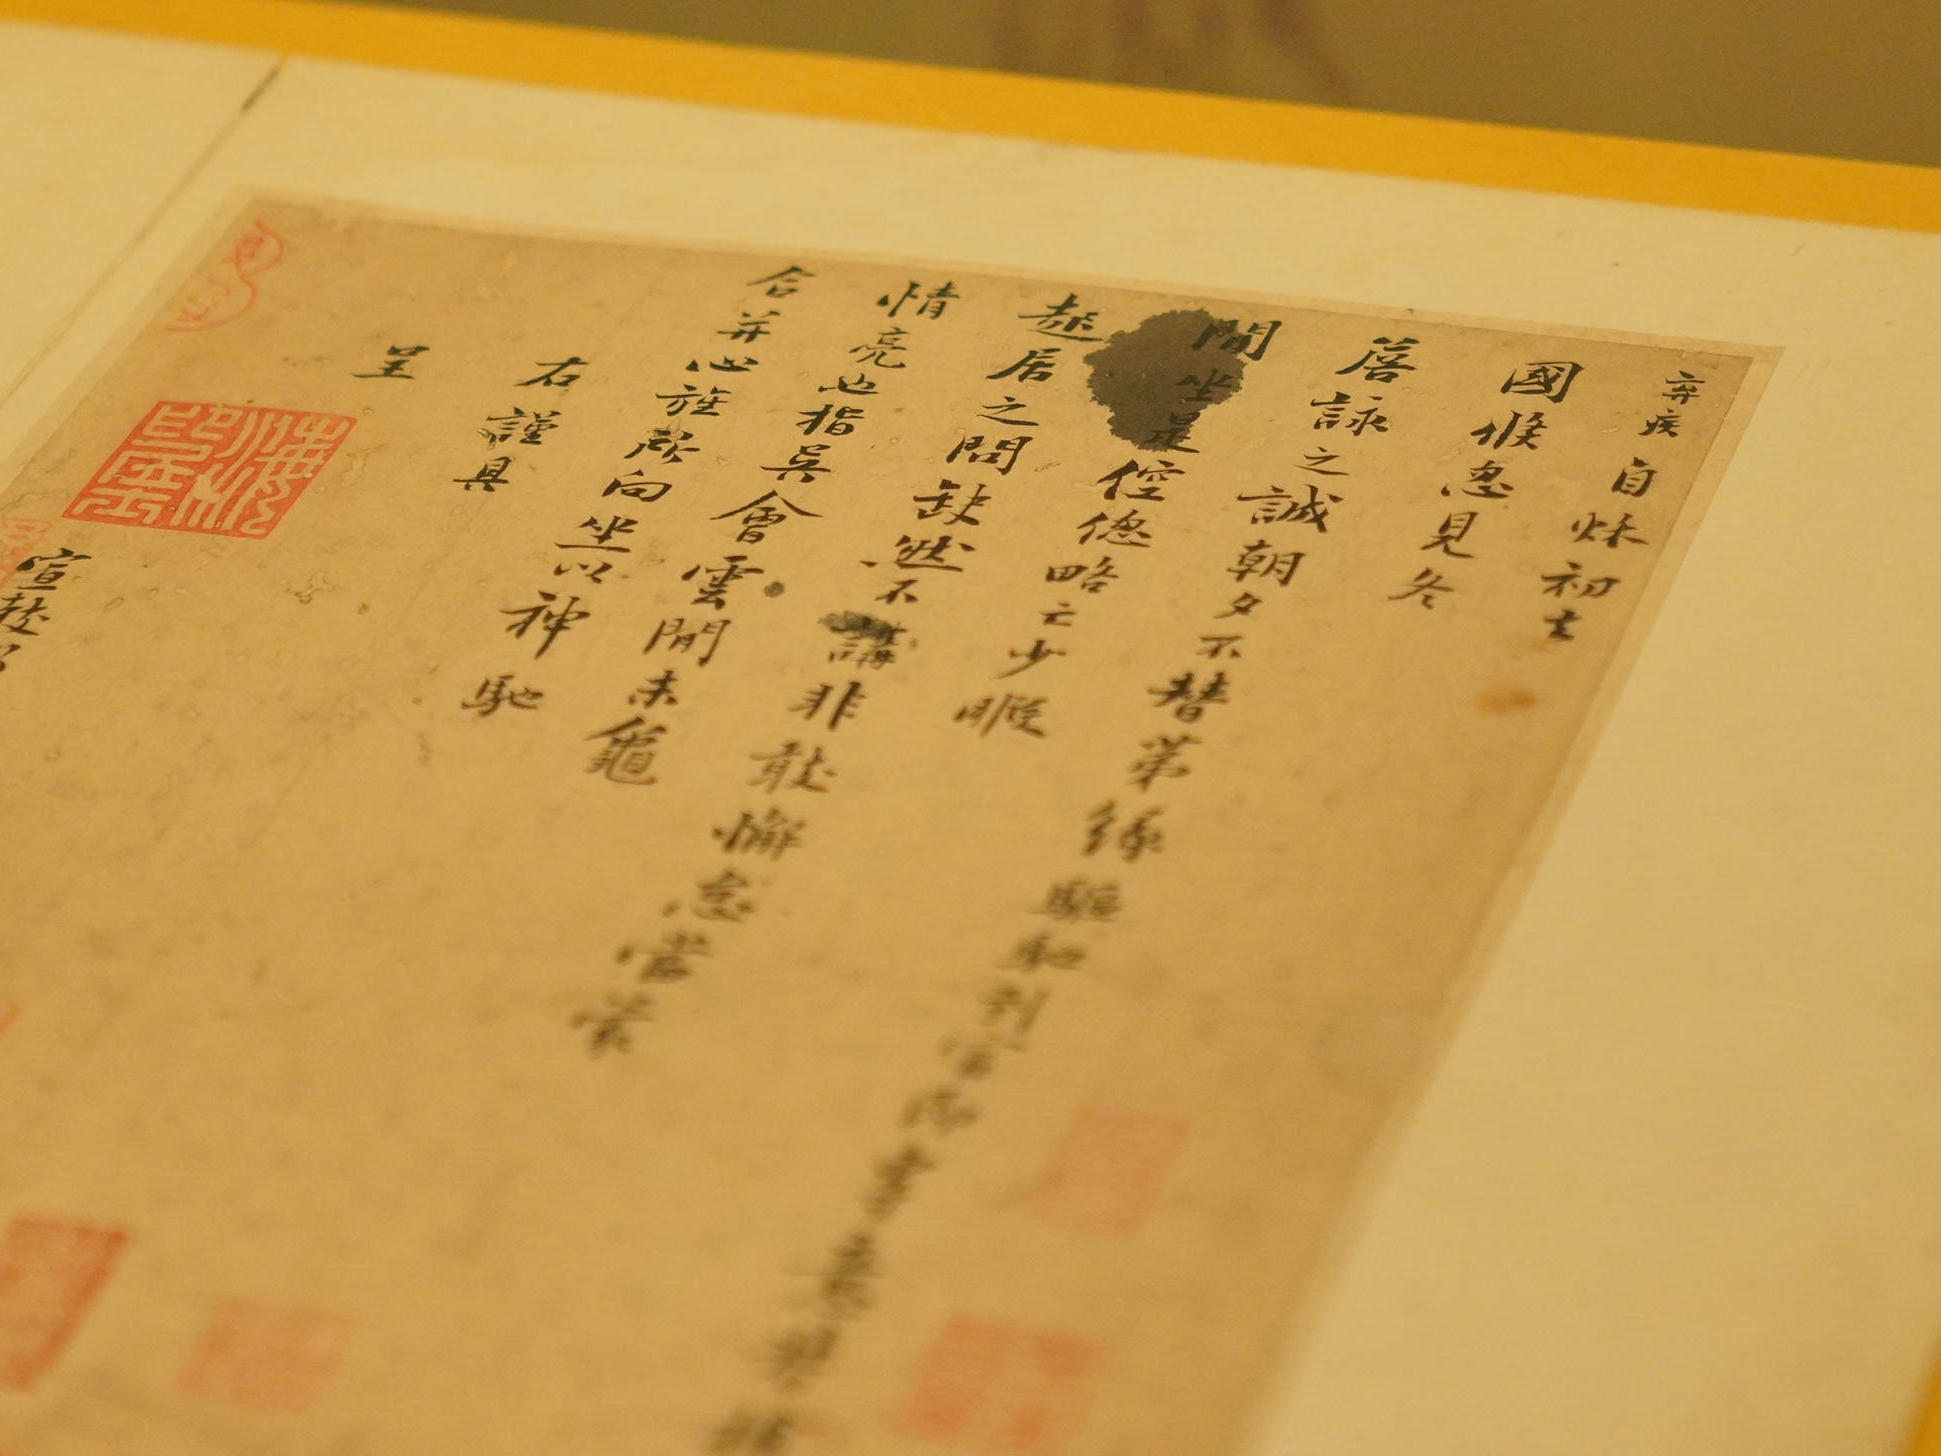 弃疾自秋初去
國倏忽見冬
詹詠之誠朝夕不替第緣驅馳到官即專意督捕
間坐是倥傯略亡少暇
起居之問缺然不講非敢懈怠當蒙
情亮也指吳會雲間未龜
合并心旌所向坐以神馳
右謹具
呈
宣教郎